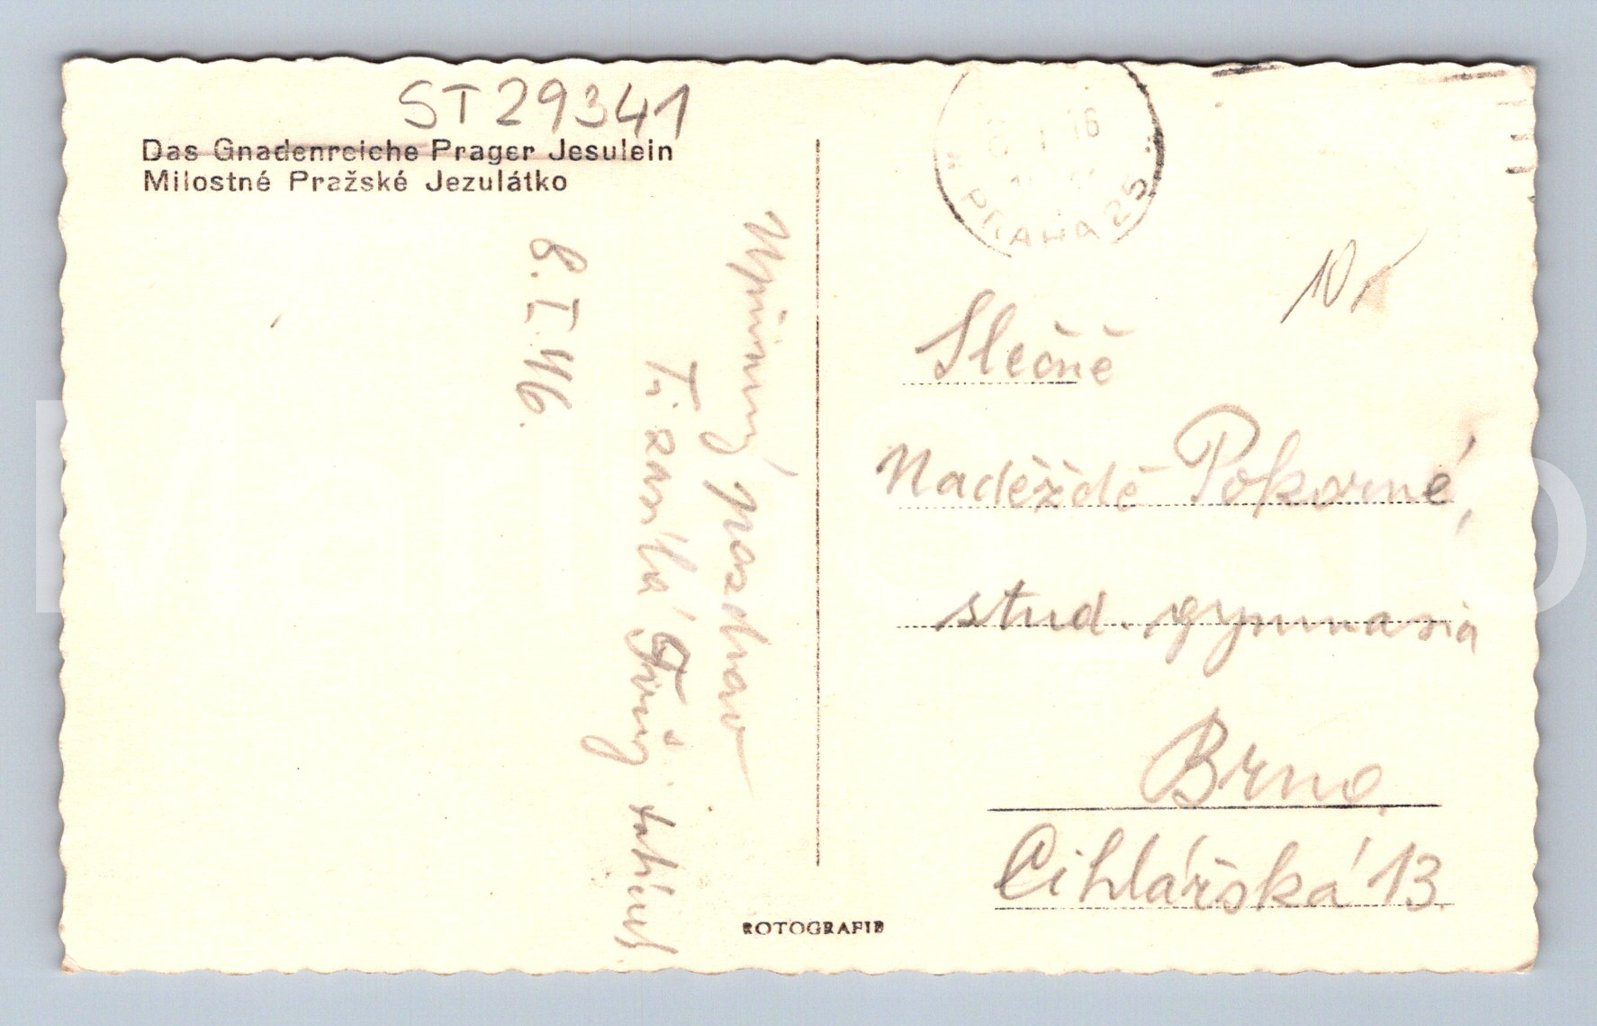 ST29341
Das Gnadenreiche Prager Jesulein
Milostné Pražské Jezulátko
8.I.46.
Upřímný pozdrav
Ti zasílá Tvůj tatínek
PRAHA 25
10
Slečně
Naděždě Pokorné,
stud. gymnasia
Brno.
Cihlářská 13.
ROTOGRAFIE